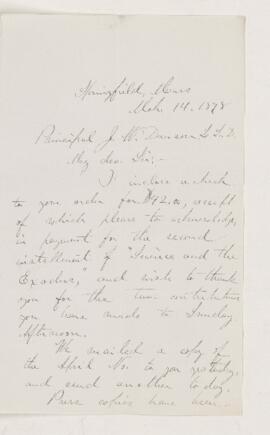 Springfield, Mass
Mch. 14. 1878
Principal J. W. Dawson L.L.D.
My dear Sir;-
I inclose a check
to your order for $42.00, receipt
of which please to acknowledge,
in payment for the second
installment of "Science and the
Exodus," and wish to thank
you for the two contributions
you have made to Sunday
Afternoon.
We mailed a copy of
the April No. to you yesterday,
and send another to day.
Press copies have been